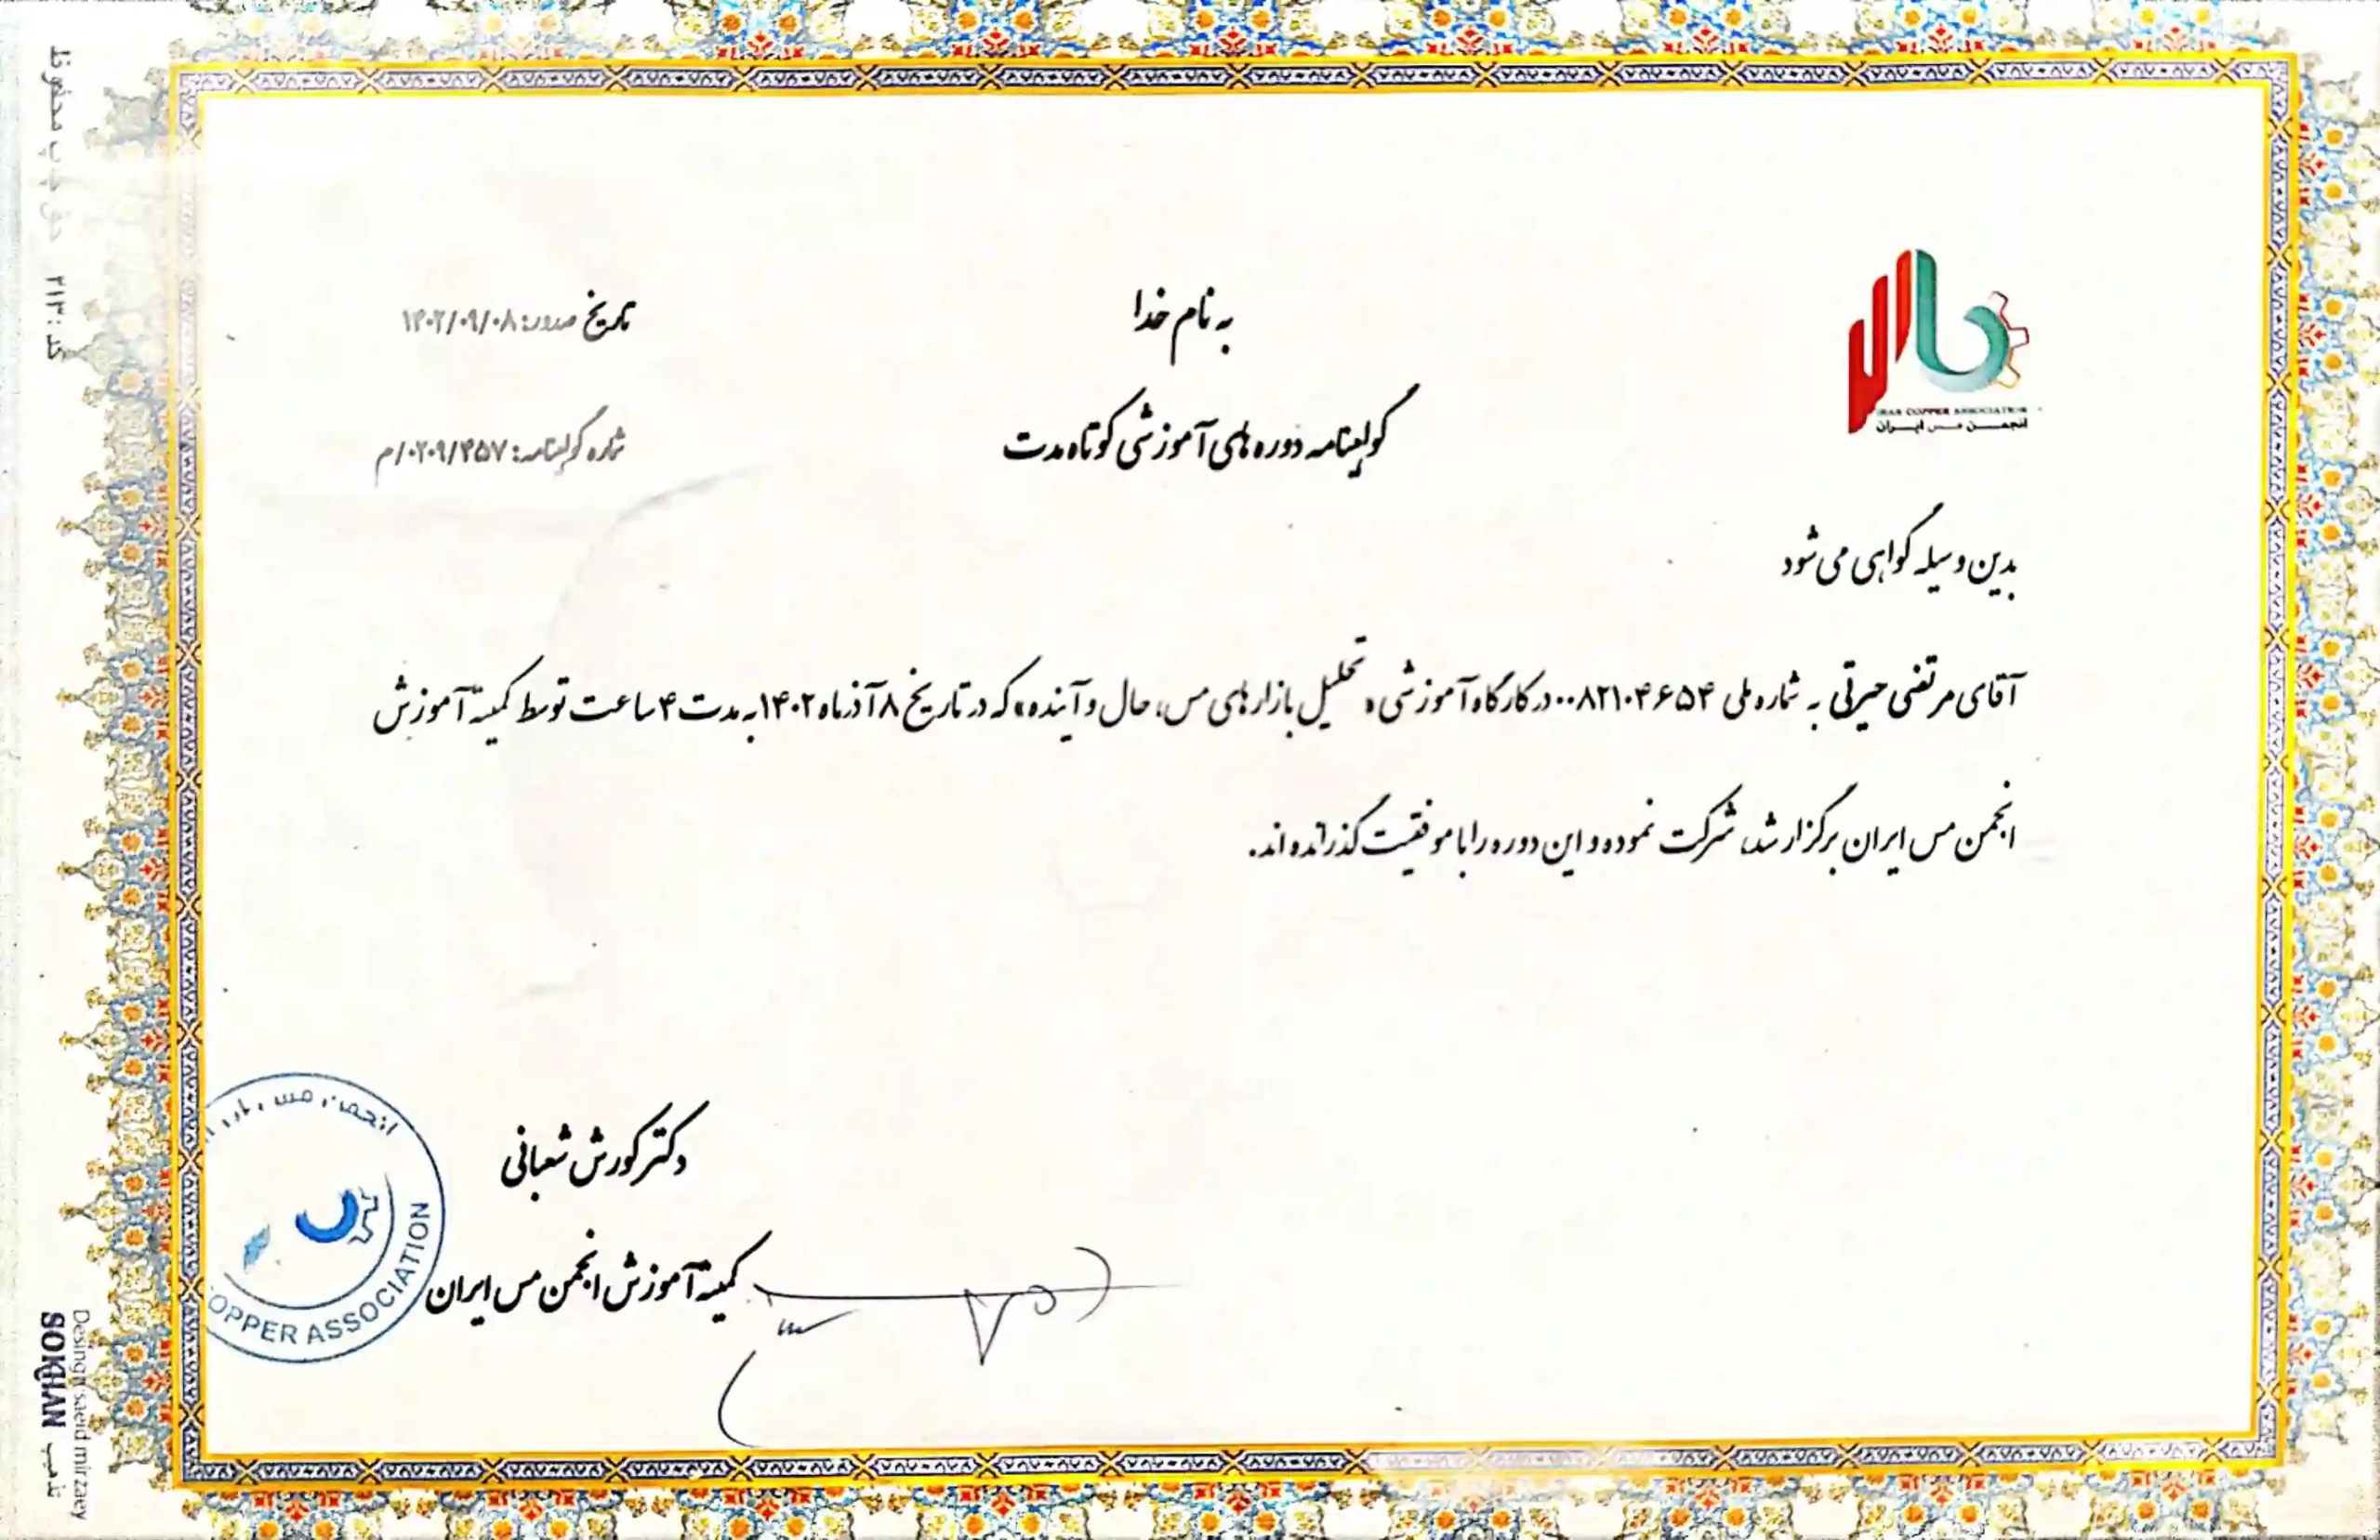 به نام خدا
گواهینامه دوره های آموزشی کوتاه مدت
تاریخ صدور: ۱۴۰۲/۰۹/۰۸
شماره گواهینامه: ۰۲۰۹/۴۵۷/م
IRAN COPPER ASSOCIATION
انجمن مس ایران
بدین وسیله گواهی می شود
آقای مرتضی حیرتی به شماره ملی ۰۰۸۲۱۰۴۶۵۴ در کارگاه آموزشی « تحلیل بازارهای مس، حال و آینده» که در تاریخ ۸ آذر ماه ۱۴۰۲ به مدت ۴ ساعت توسط کمیته آموزش
انجمن مس ایران برگزار شد، شرکت نموده و این دوره را با موفقیت گذرانده اند.
دکتر کورش شعبانی
کمیته آموزش انجمن مس ایران
انجمن مس
OPPER ASSOCIATION
حق چاپ محفوظ
کد: ۲۱۳
Desing: saeid mirzaey
SOKHAN
تذهیب